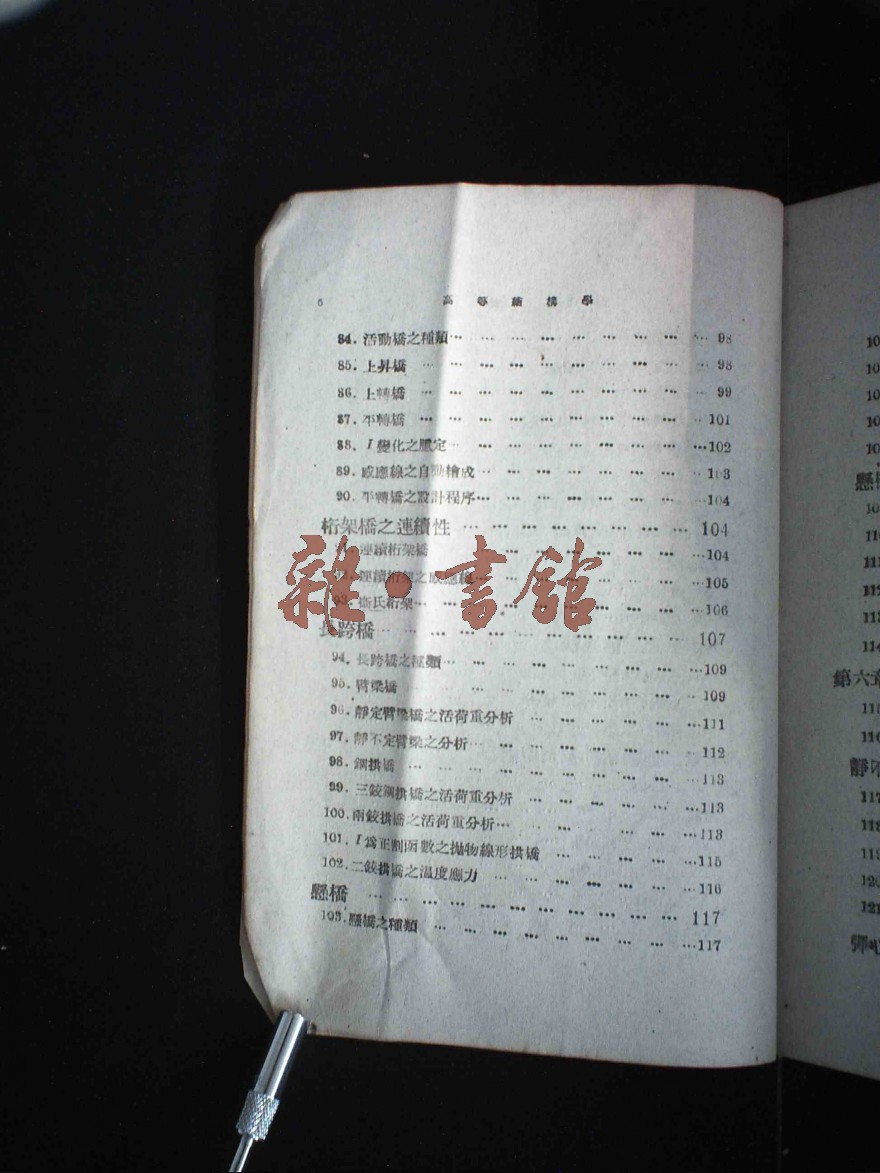 6 高等結構學
84. 活動橋之種類 … … … … … … … … 98
85. 上昇橋 … … … … … … … … … 98
86. 上轉橋 … … … … … … … … … 99
87. 平轉橋 … … … … … … … … … 101
88. I 變化之臆定 … … … … … … … … 102
89. 感應線之自動繪成 … … … … … … … 103
90. 平轉橋之設計程序 … … … … … … … 104
桁架橋之連續性 … … … … … … … … 104
91. 連續桁架橋 … … … … … … … … 104
92. 連續桁架之感應線 … … … … … … … 105
93. 氏桁架 … … … … … … … … … 106
長跨橋 … … … … … … … … … … 107
94. 長跨橋之種類 … … … … … … … … 109
95. 臂梁橋 … … … … … … … … … 109
96. 靜定臂梁橋之活荷重分析 … … … … … … 111
97. 靜不定臂梁之分析 … … … … … … … 112
98. 鋼拱橋 … … … … … … … … … 113
99. 三鉸鋼拱橋之活荷重分析 … … … … … … 113
100. 兩鉸拱橋之活荷重分析 … … … … … … 113
101. I 爲正割函數之拋物線形拱橋 … … … … … 115
102. 二鉸拱橋之溫度應力 … … … … … … … 116
懸橋 … … … … … … … … … … 117
103. 懸橋之種類 … … … … … … … … … 117
雜·書館
懸
11
11
112
113
114
第六章
115
116
靜不
117
118
119
120
121
彈